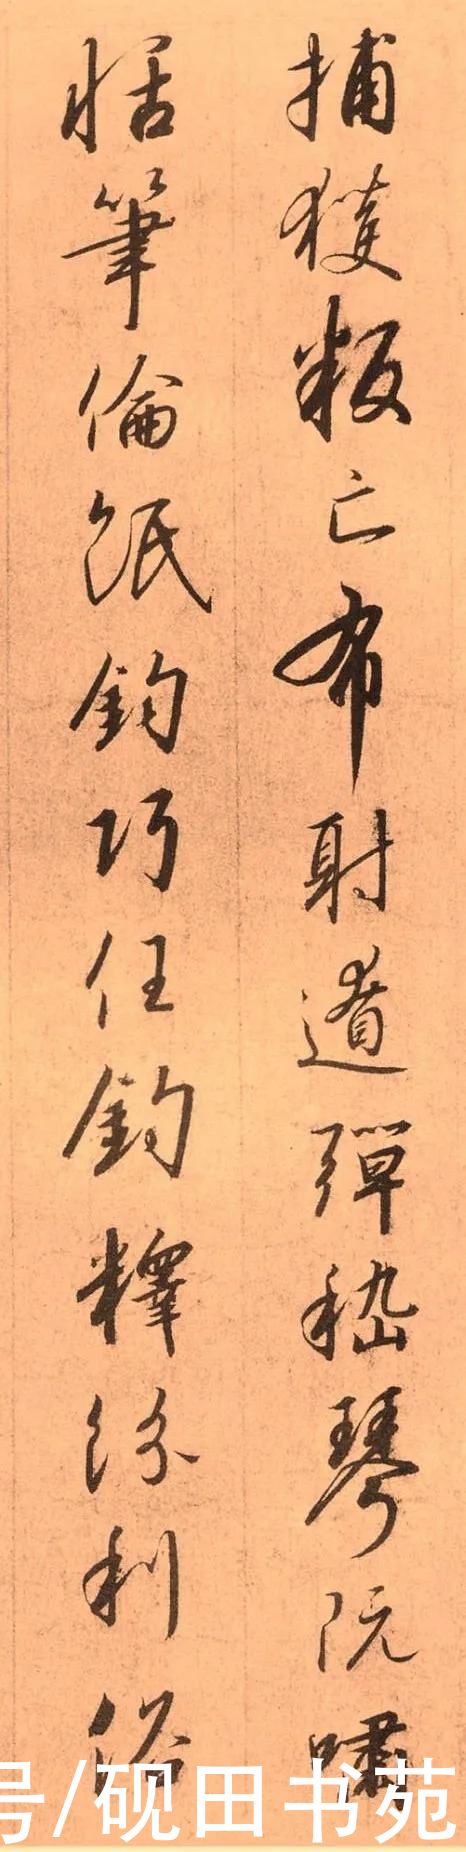 捕獲叛亡布射遼彈嵇琴阮嘯
恬筆倫紙鈞巧任鈞釋紛利俗
号/砚田书苑